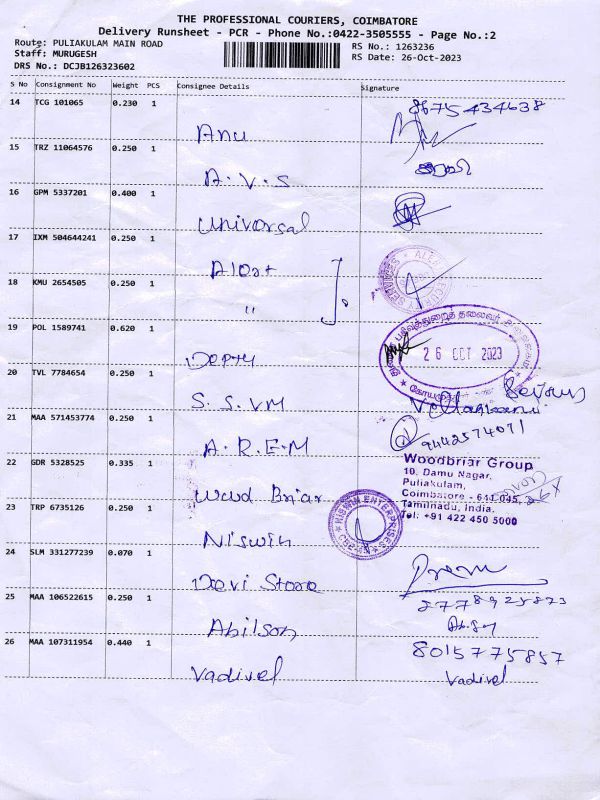 THE PROFESSIONAL COURIERS, COIMBATORE
Delivery Runsheet - PCR - Phone No.:0422-3505555 - Page No.:2
Route: PULIAKULAM MAIN ROAD
RS No.: 1263236
Staff: MURUGESH
RS Date: 26-Oct-2023
DRS No.: DCJB126323602
S No Consignment No Weight PCS Consignee Details Signature
14 TCG 101065 0.230 1
8675434638
Anu
15 TRZ 11064576 0.250 1
A.V.S
16 GPM 5337201 0.400 1
Universal
17 IXM 504644241 0.250 1
Alert
18 KMU 2654505 0.250 1
"
19 POL 1589741 0.620 1
26 OCT 2023
Depty
20 TVL 7784654 0.250 1
S.S.VM
21 MAA 571453774 0.250 1
9442574071
A.R.E.M
22 GDR 5328525 0.335 1
Woodbriar Group
10, Damu Nagar,
Puliakulam,
Coimbatore - 641 045,
Tamilnadu, India.
Tel: +91 422 450 5000
Wood Briar
23 TRP 6735126 0.250 1
Niswin
24 SLM 331277239 0.070 1
Prem
Devi Store
25 MAA 106522615 0.250 1
Abilson
26 MAA 107311954 0.440 1
8015775857
Vadivel
Vadivel